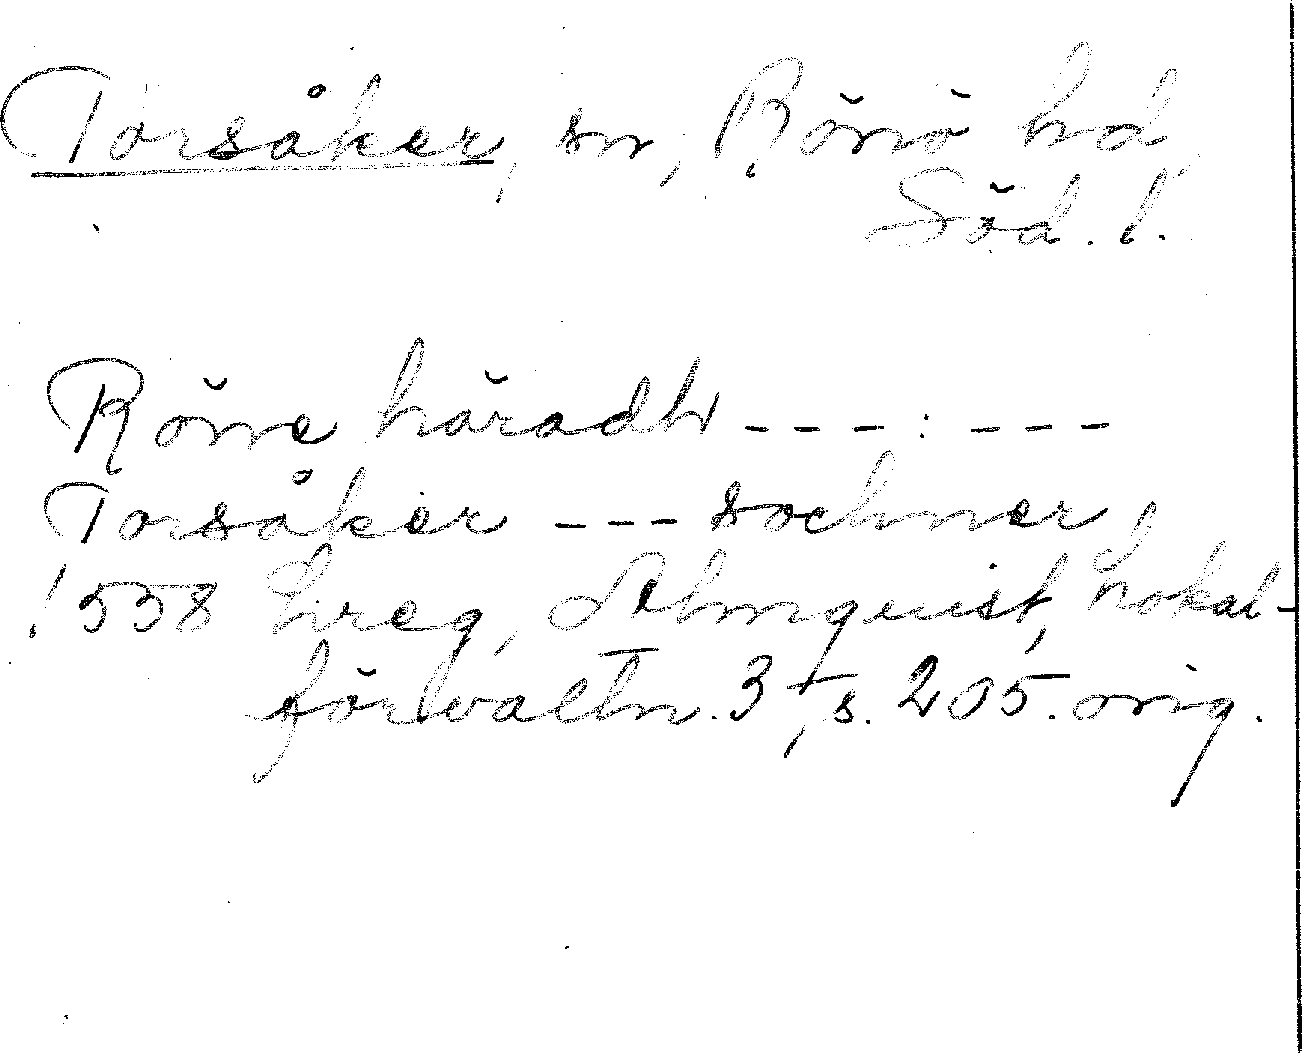 Torsåker, sn, Rönö hd,
Söd. l.
Rönne häradh - - - : - - -
Torsåker - - - sochner,
1558 Lreg, Almquist, Lokal-
förvaltn. 3, s. 205. orig.